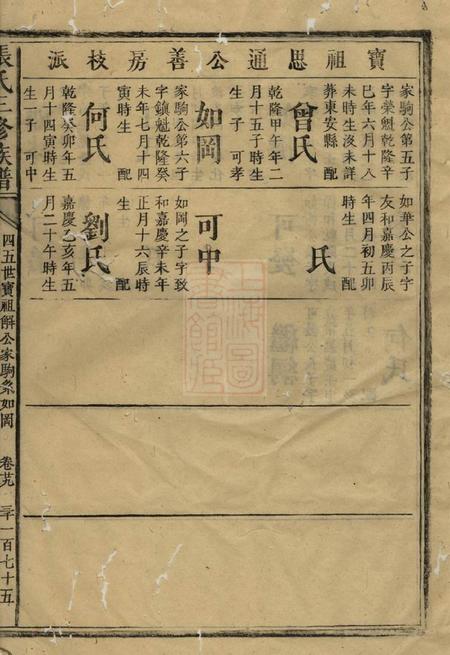 寶祖思通公善房枝派
家駒公第五子
字榮魁乾隆辛
巳年六月十八
未時生沒未詳
葬東安縣 配
曾氏
乾隆甲午年二
月十五子時生
生一子 可孝
如岡
家駒公第六子
字鎮魁乾隆癸
未年七月十四
寅時生 配
何氏
乾隆癸卯年五
月十四寅時生
生一子 可中
如華公之子字
友和嘉慶丙辰
年四月初五卯
時生 配
氏
可中
如岡之子字致
和嘉慶辛未年
正月十六辰時
生 配
劉氏
嘉慶乙亥年五
月二十午時生
張氏三修族譜
四五世寶祖解公家駒系如岡
卷芤
三千一百七十五
上海圖
書館藏